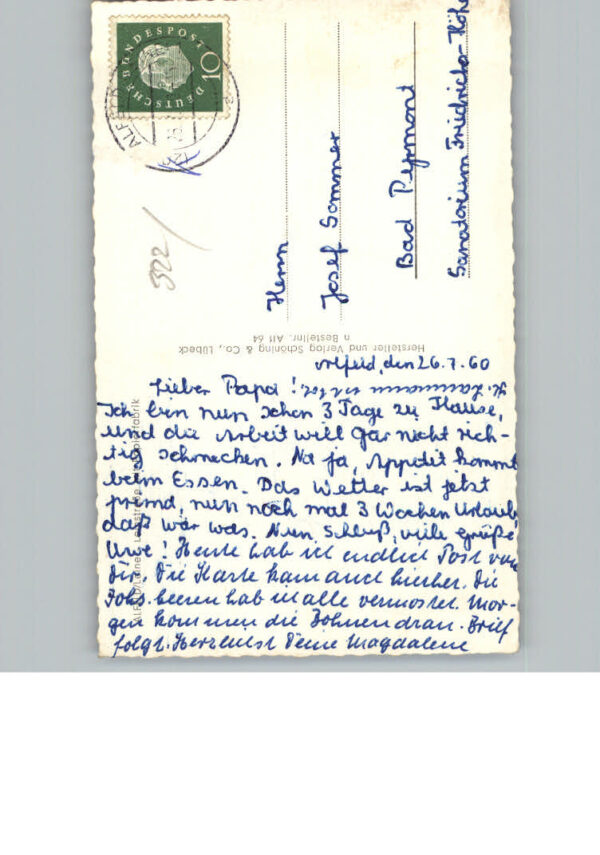 DEUTSCHE BUNDESPOST
10
ALFELD
322/
Herrn
Josef Sommer
Bad Pyrmont
Sanatorium Friedrichs-Höhe
Hersteller und Verlag Schöning & Co., Lübeck
n Bestellnr. Alf 64
Alfeld, den 26.7.60
Lieber Papa!
H. ist tot.
Ich bin nun schon 3 Tage zu Hause,
und die Arbeit will gar nicht rich-
tig schmecken. Na ja, Appetit kommt
beim Essen. Das Wetter ist jetzt
prima, nun noch mal 3 Wochen Urlaub,
daß wär was. Nun Schluß, viele Grüße
Uwe! Heute hab ich endlich Post von
Dir. Die Karte kam auch hierher. Die
Johs.beeren hab ich alle vermostet. Mor-
gen kommen die Bohnen dran. Brief
folgt. Herzlichst Deine Magdalene
ALFELD/Leine